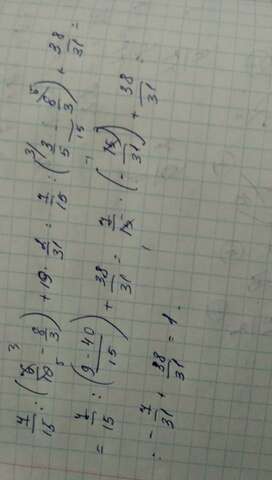 7/15 : (6/10 - 8/3) + 19 · 2/31 = 7/15 : (3/5 - 8/3) + 38/31 =
= 7/15 : ((9 - 40)/15) + 38/31 = 7/15 · (- 15/31) + 38/31 =
: - 7/31 + 38/31 = 1.